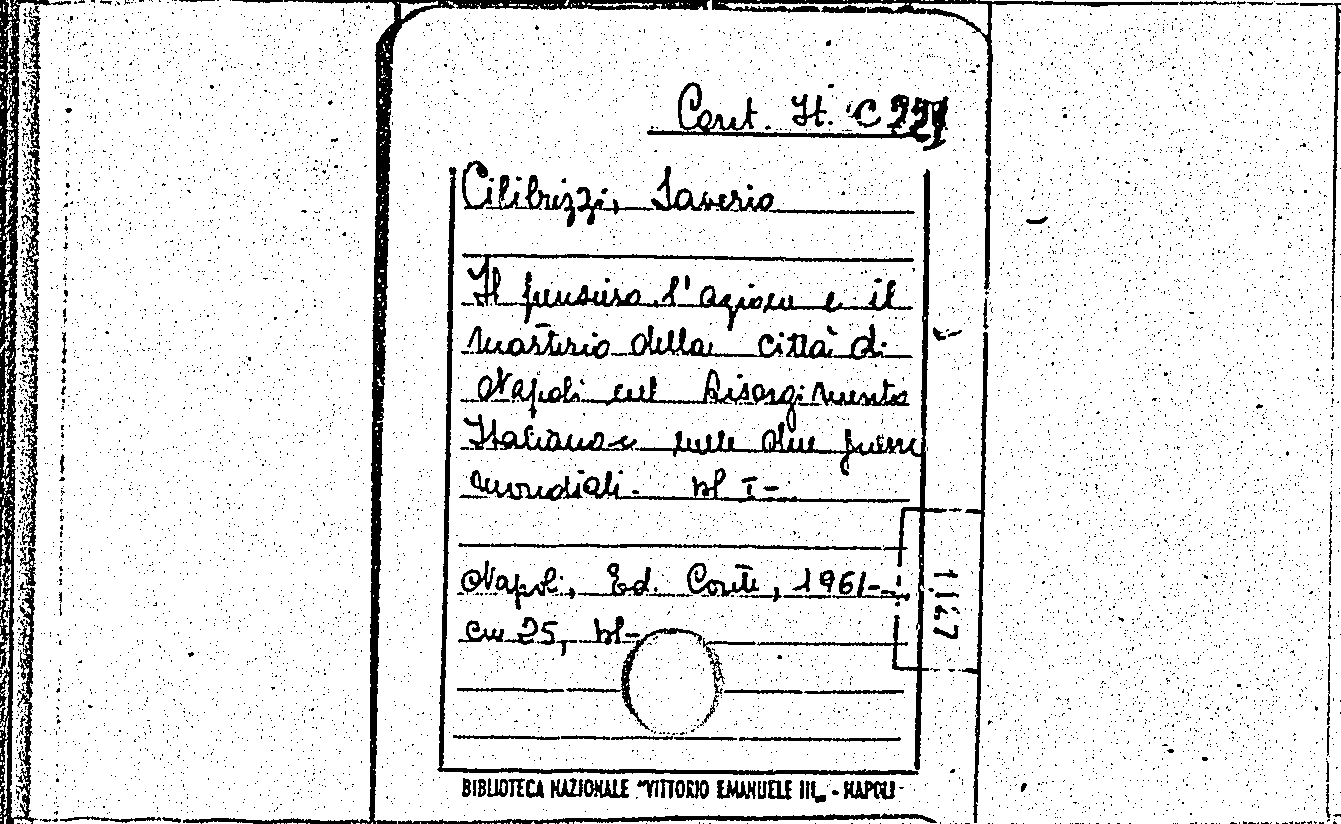 Cont. It. C 221
Cilibrizzi, Saverio
Il pensiero, l'azione e il
martirio della città di
Napoli nel Risorgimento
Italiano e nelle due guerre
mondiali. Vol I-
Napoli, Ed. Conte, 1961-
cm 25, vol-
BIBLIOTECA NAZIONALE "VITTORIO EMANUELE III„ - NAPOLI